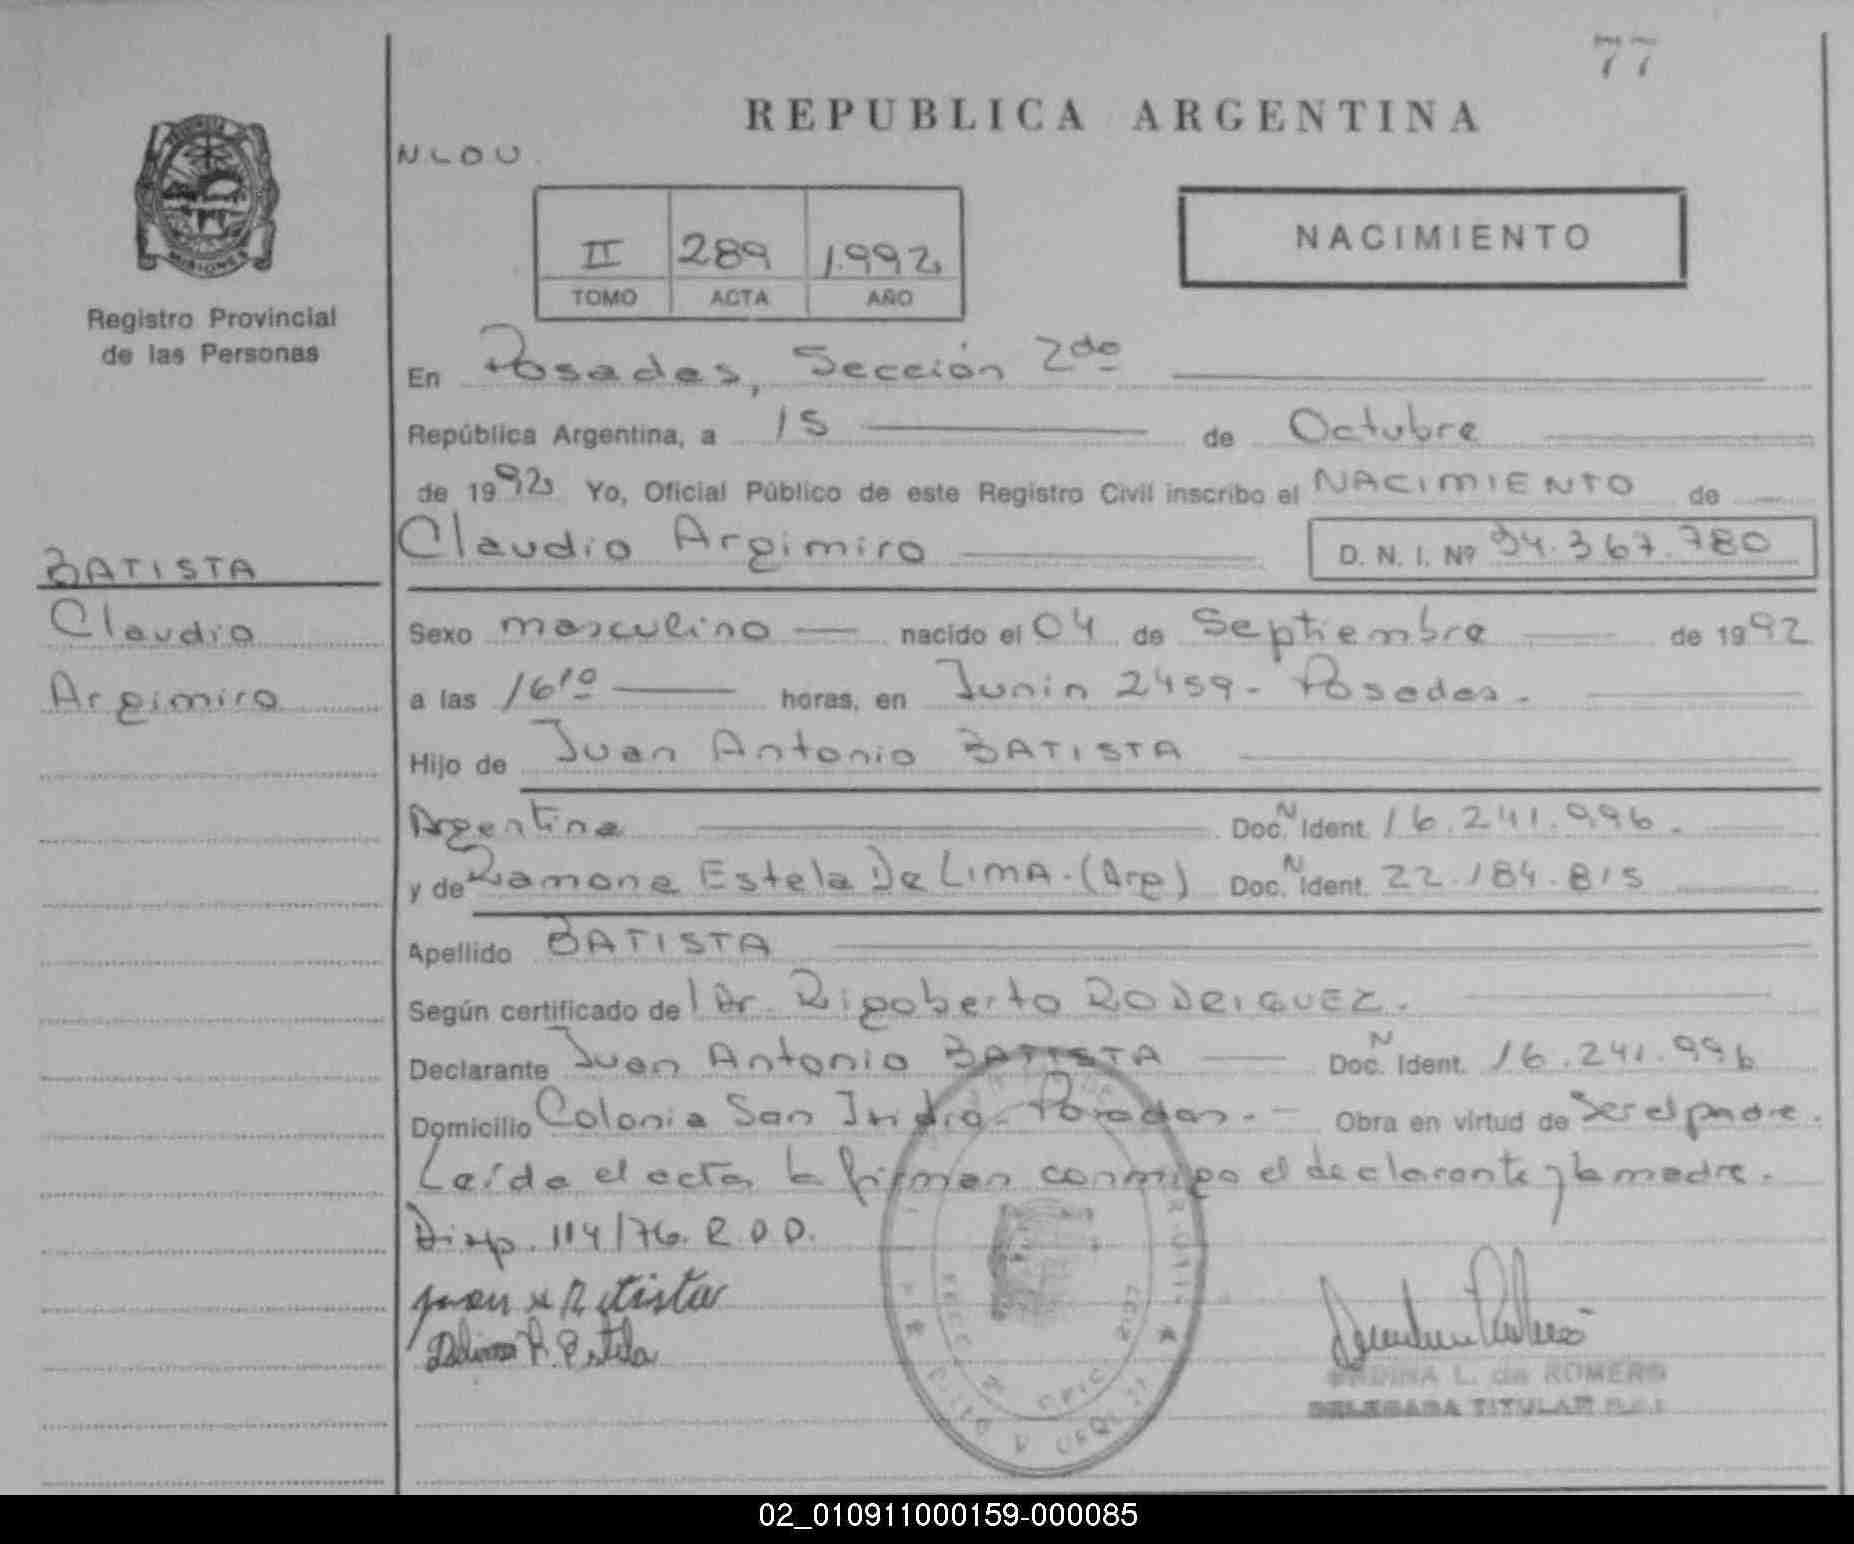 77
REPUBLICA ARGENTINA
NLOU
II 289 1.992
TOMO ACTA AÑO
NACIMIENTO
MISIONES
Registro Provincial
de las Personas
En Posadas, Sección 2da
República Argentina, a 15 de Octubre
de 1992 Yo, Oficial Público de este Registro Civil inscribo el NACIMIENTO de
Claudio Argimiro D. N. I. Nº 94.367.780
BATISTA
Claudio
Argimiro
Sexo masculino nacido el 04 de Septiembre de 1992
a las 16 10 horas, en Junin 2459 - Posadas.
Hijo de Juan Antonio BATISTA
Argentina Doc. N Ident. 16.241.996.
y de Ramona Estela De LIMA. (Arg) Doc. N Ident. 22.184.815
Apellido BATISTA
Según certificado del Dr. Rigoberto RODRIGUEZ.
Declarante Juan Antonio BATISTA Doc. N Ident. 16.241.996
Domicilio Colonia San Isidro - Posadas. - Obra en virtud de ser el padre.
Leída el acta, la firman conmigo el declarante y la madre.
Disp. 114/76. R.D.D.
juan A Batista
Delima R. Estela
L. de ROMERO
DELEGADA TITULAR
02_010911000159-000085